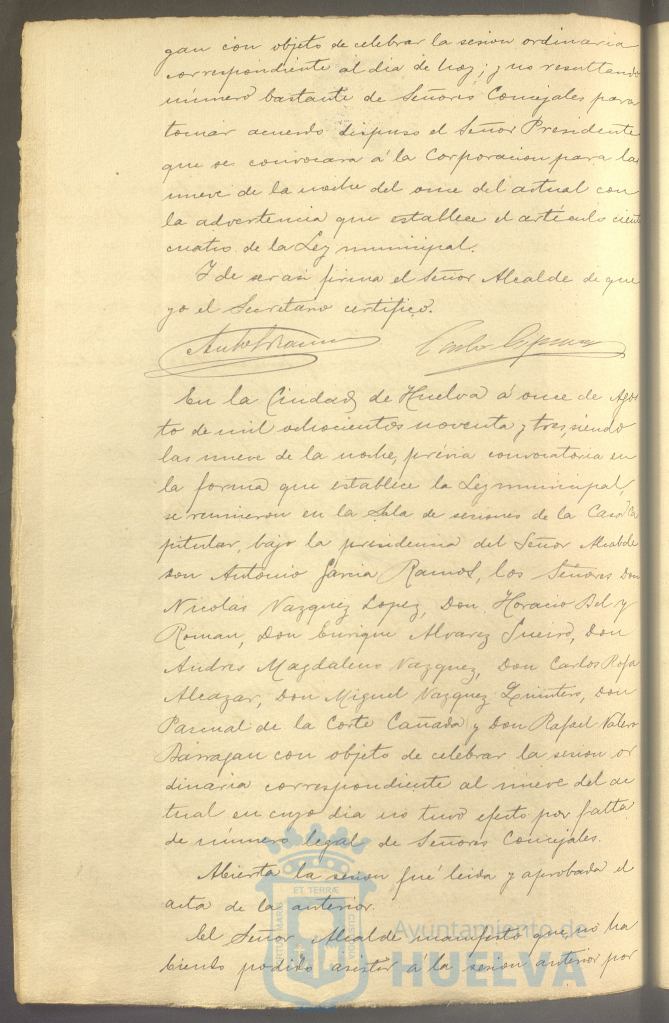 gan con objeto de celebrar la sesion ordinaria
correspondiente al dia de hoy; y no resultando
número bastante de Señores Concejales para
tomar acuerdo dispuso el Señor Presidente
que se convocara á la Corporacion para las
nueve de la noche del once del actual con
la advertencia que establece el artículo ciento
cuatro de la Ley municipal.
Y de ser asi firma el Señor Alcalde de que
yo el Secretario certifico.
En la Ciudad de Huelva á once de Agos
to de mil ochocientos noventa y tres, siendo
las nueve de la noche, prévia convocatoria en
la forma que establece la Ley municipal,
se reunieron en la Sala de sesiones de la Casa Ca
pitular, bajo la presidencia del Señor Alcalde
don Antonio Garcia Ramos, los Señores Don
Nicolás Vazquez Lopez, Don Horacio Bel y
Roman, Don Enrique Alvarez Sueiro, Don
Andres Magdaleno Vazquez, Don Carlos Rofa
Alcazar, Don Miguel Vazquez Quintero, Don
Pascual de la Corte Cañada y Don Rafael Valero
Barragan con objeto de celebrar la sesion or
dinaria correspondiente al nueve del ac
tual en cuyo dia no tuvo efecto por falta
de número legal de Señores Concejales.
Abierta la sesion fué leida y aprobada el
acta de la anterior.
El Señor Alcalde manifestó que no ha
biendo podido asistir á la sesion anterior por
ET TERRÆ
PORTUS MARIS
CUSTODIA
Ayuntamiento de
HUELVA